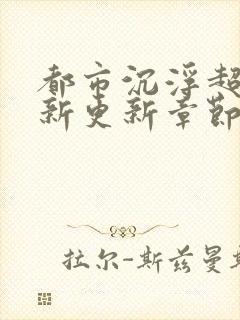 都市沉浮超
新更新章节
拉尔-斯兹曼斯